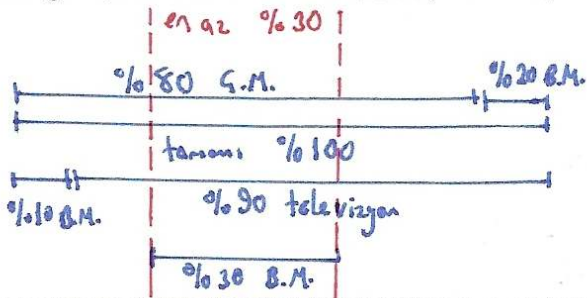 en az %30
%80 Ç.M. %20 B.M.
tamamı %100
%10 B.M. %90 televizyon
%30 B.M.